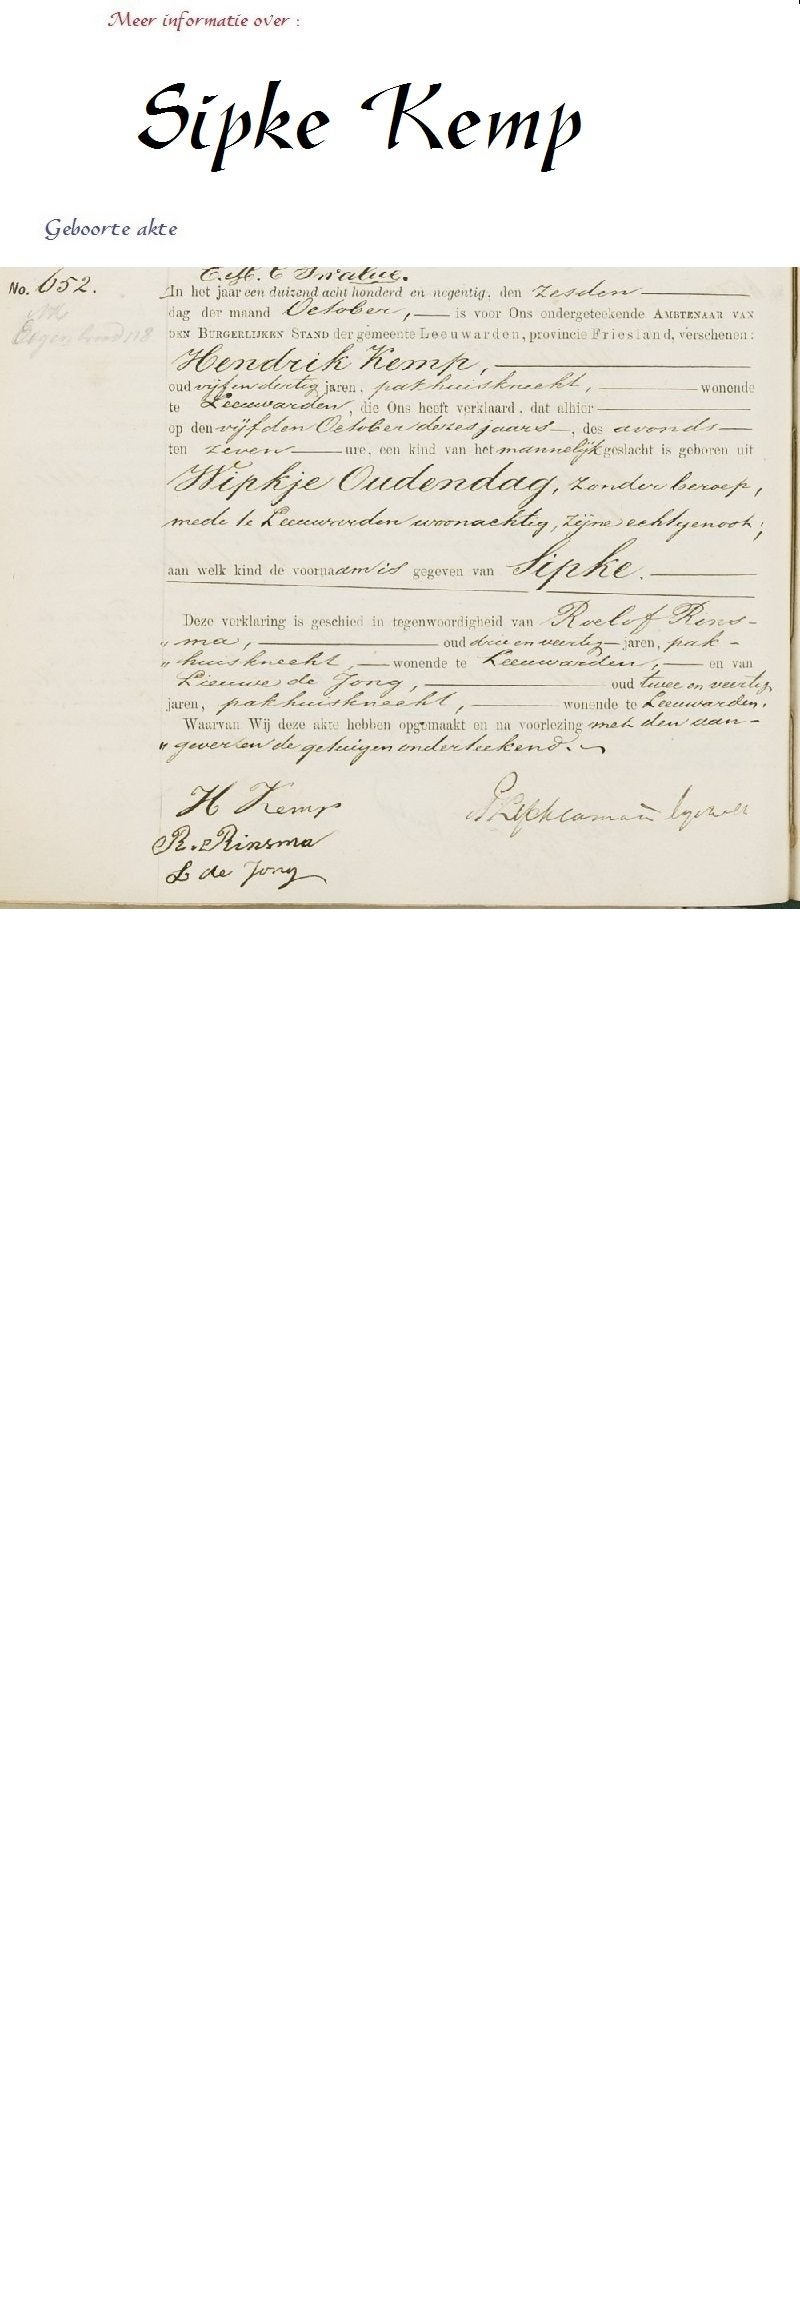 Meer informatie over :
Sipke Kemp
Geboorte akte
No. 652.
In het jaar een duizend acht honderd en negentig, den zesden
dag der maand October, is voor Ons ondergeteekende AMBTENAAR VAN
DEN BURGERLIJKEN STAND der gemeente Leeuwarden, provincie Friesland, verschenen:
Hendrik Kemp,
oud vijf en dertig jaren, pakhuisknecht, wonende
te Leeuwarden, die Ons heeft verklaard, dat alhier
op den vijfden October dezes jaars, des avonds
ten zeven ure, een kind van het mannelijk geslacht is geboren uit
Wipkje Oudendag, zonder beroep,
mede te Leeuwarden woonachtig, zijne echtgenoot;
aan welk kind de voornaam is gegeven van Sipke.
Deze verklaring is geschied in tegenwoordigheid van Roelof Rins-
„ ma, oud drie en veertig jaren, pak-
„ huisknecht, wonende te Leeuwarden, en van
Lieuwe de Jong, oud twee en veertig
jaren, pakhuisknecht, wonende te Leeuwarden.
Waarvan Wij deze akte hebben opgemaakt en na voorlezing met den aan-
„ gever en de getuigen onderteekend.
H Kemp
R. Rinsma
L de Jong